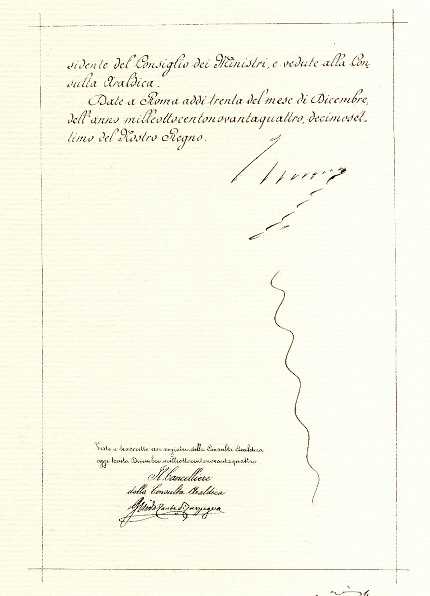 sidente del Consiglio dei Ministri, e vedute alla Con
sulta Araldica.
Date a Roma addì trenta del mese di Dicembre,
dell'anno milleottocentonovantaquattro, decimoset-
timo del Nostro Regno.
Visto e trascritto nei registri della Consulta Araldica
oggi trenta Dicembre milleottocentonovantaquattro
Il Cancelliere
della Consulta Araldica